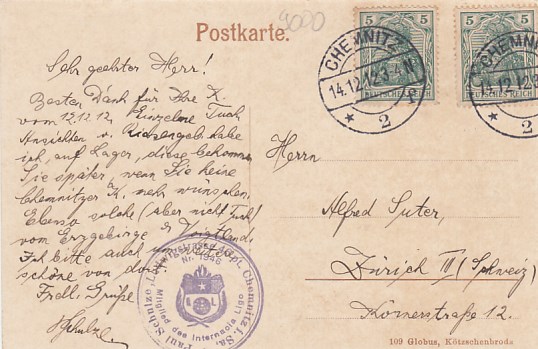 4000
Postkarte.
5 5
5 5
DEUTSCHES REICH
DEUTSCHES REICH
CHEMNITZ
14.12.12.3-4N.
* 2 f
CHEMNITZ
14.12.12.3
* 2
Sehr geehrter Herr!
Besten Dank für Ihre K.
vom 12.12.12. Einzelne Tuch
Ansichten v. Riesengeb. habe
ich, auf Lager, diese bekommen
Sie später, wenn Sie keine
Chemnitzer K. mehr wünschen.
Ebenso solche (aber nicht Tuch)
vom Erzgebirge & Voigtland.
Ich bitte auch um
schöne von dort.
Frdl. Grüße
Schulze
Herrn
Alfred Suter,
Zürich III (Schweiz)
Körnerstraße 12.
Paul Schulze, Chemnitz, Sa.
Nr. 1946
Mitglied des Internsola Ligo
109 Globus, Kötzschenbroda